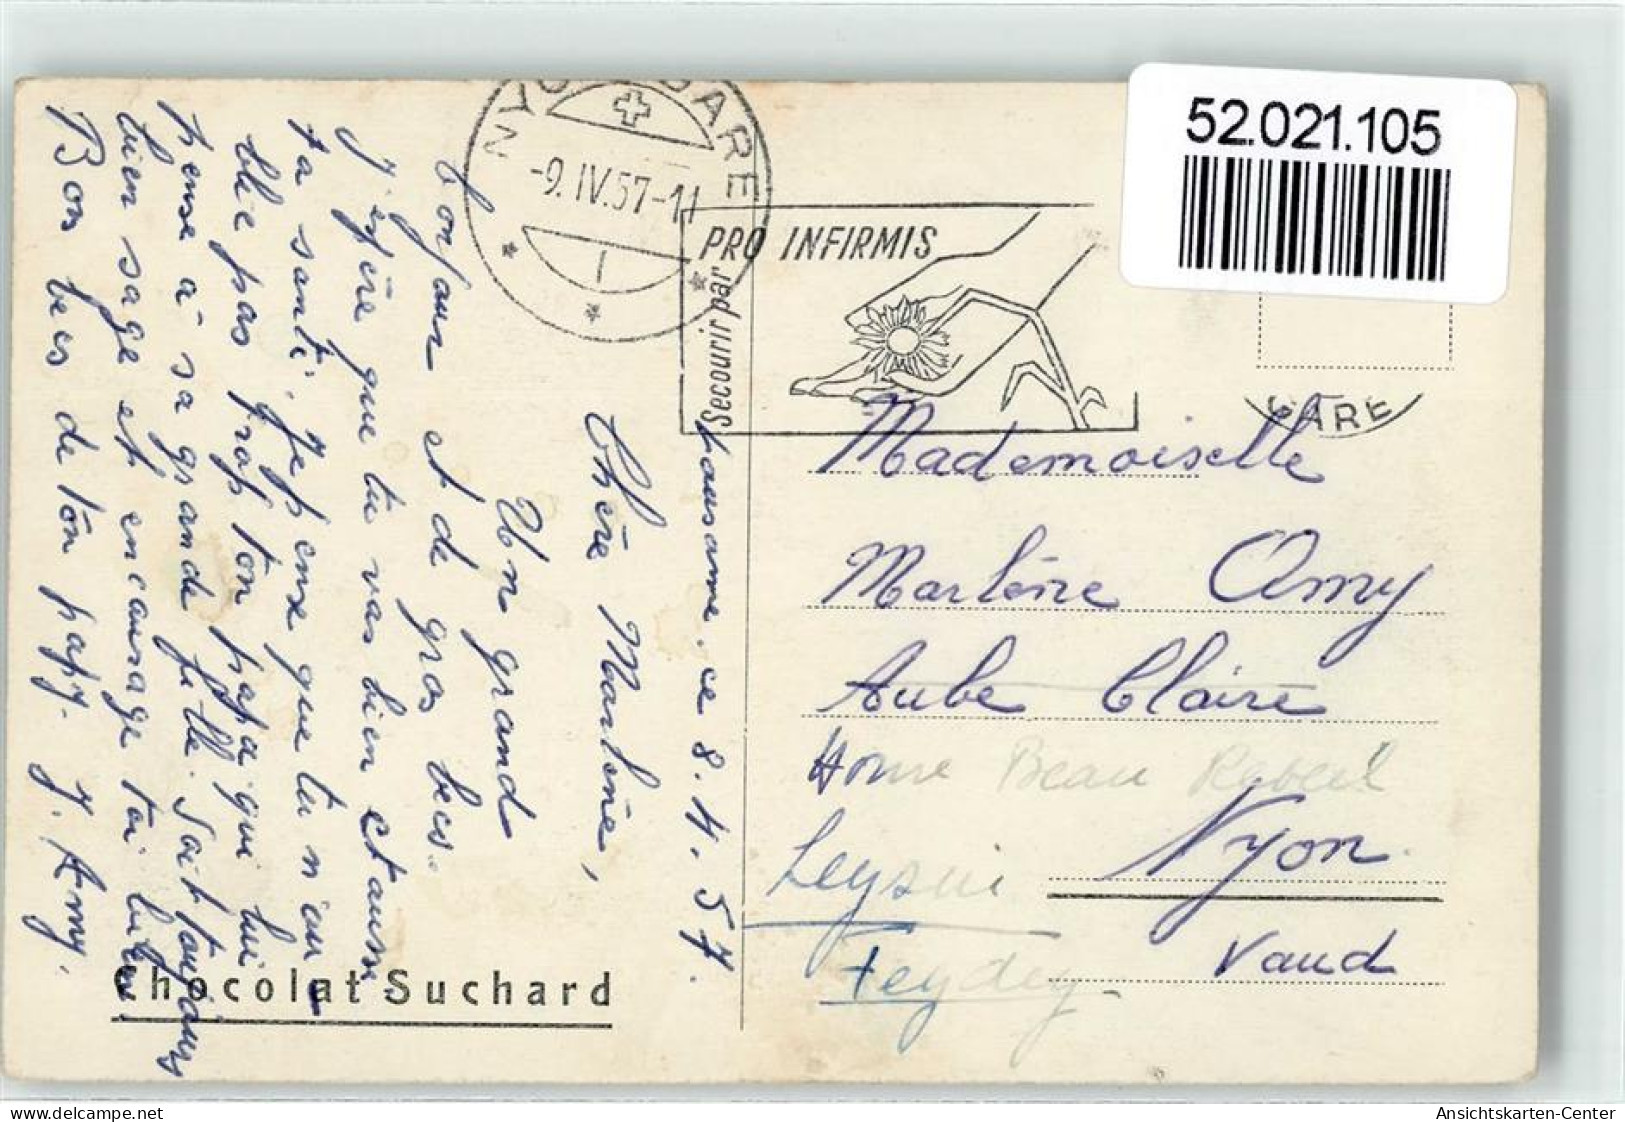 52.021.105
NYON GARE
-9.IV.57-11
PRO INFIRMIS
Secourir par
GARE
Lausanne, ce 8.4.57.
Chère Marlène,
Un grand
bonjour et de gros becs.
J'espère que tu vas bien et aussi
ta santé, je pense que tu n'ou
blie pas trop ton papa qui lui
pense à sa grande fille. Soit toujours
bien sage et encourage toi bien
Bon becs de ton papy. J. Amy.
Chocolat Suchard
Mademoiselle
Marlène Amy
Aube Claire
Home Beau Réveil
Nyon.
Leysin
Vaud
Feydey-
Ansichtskarten-Center